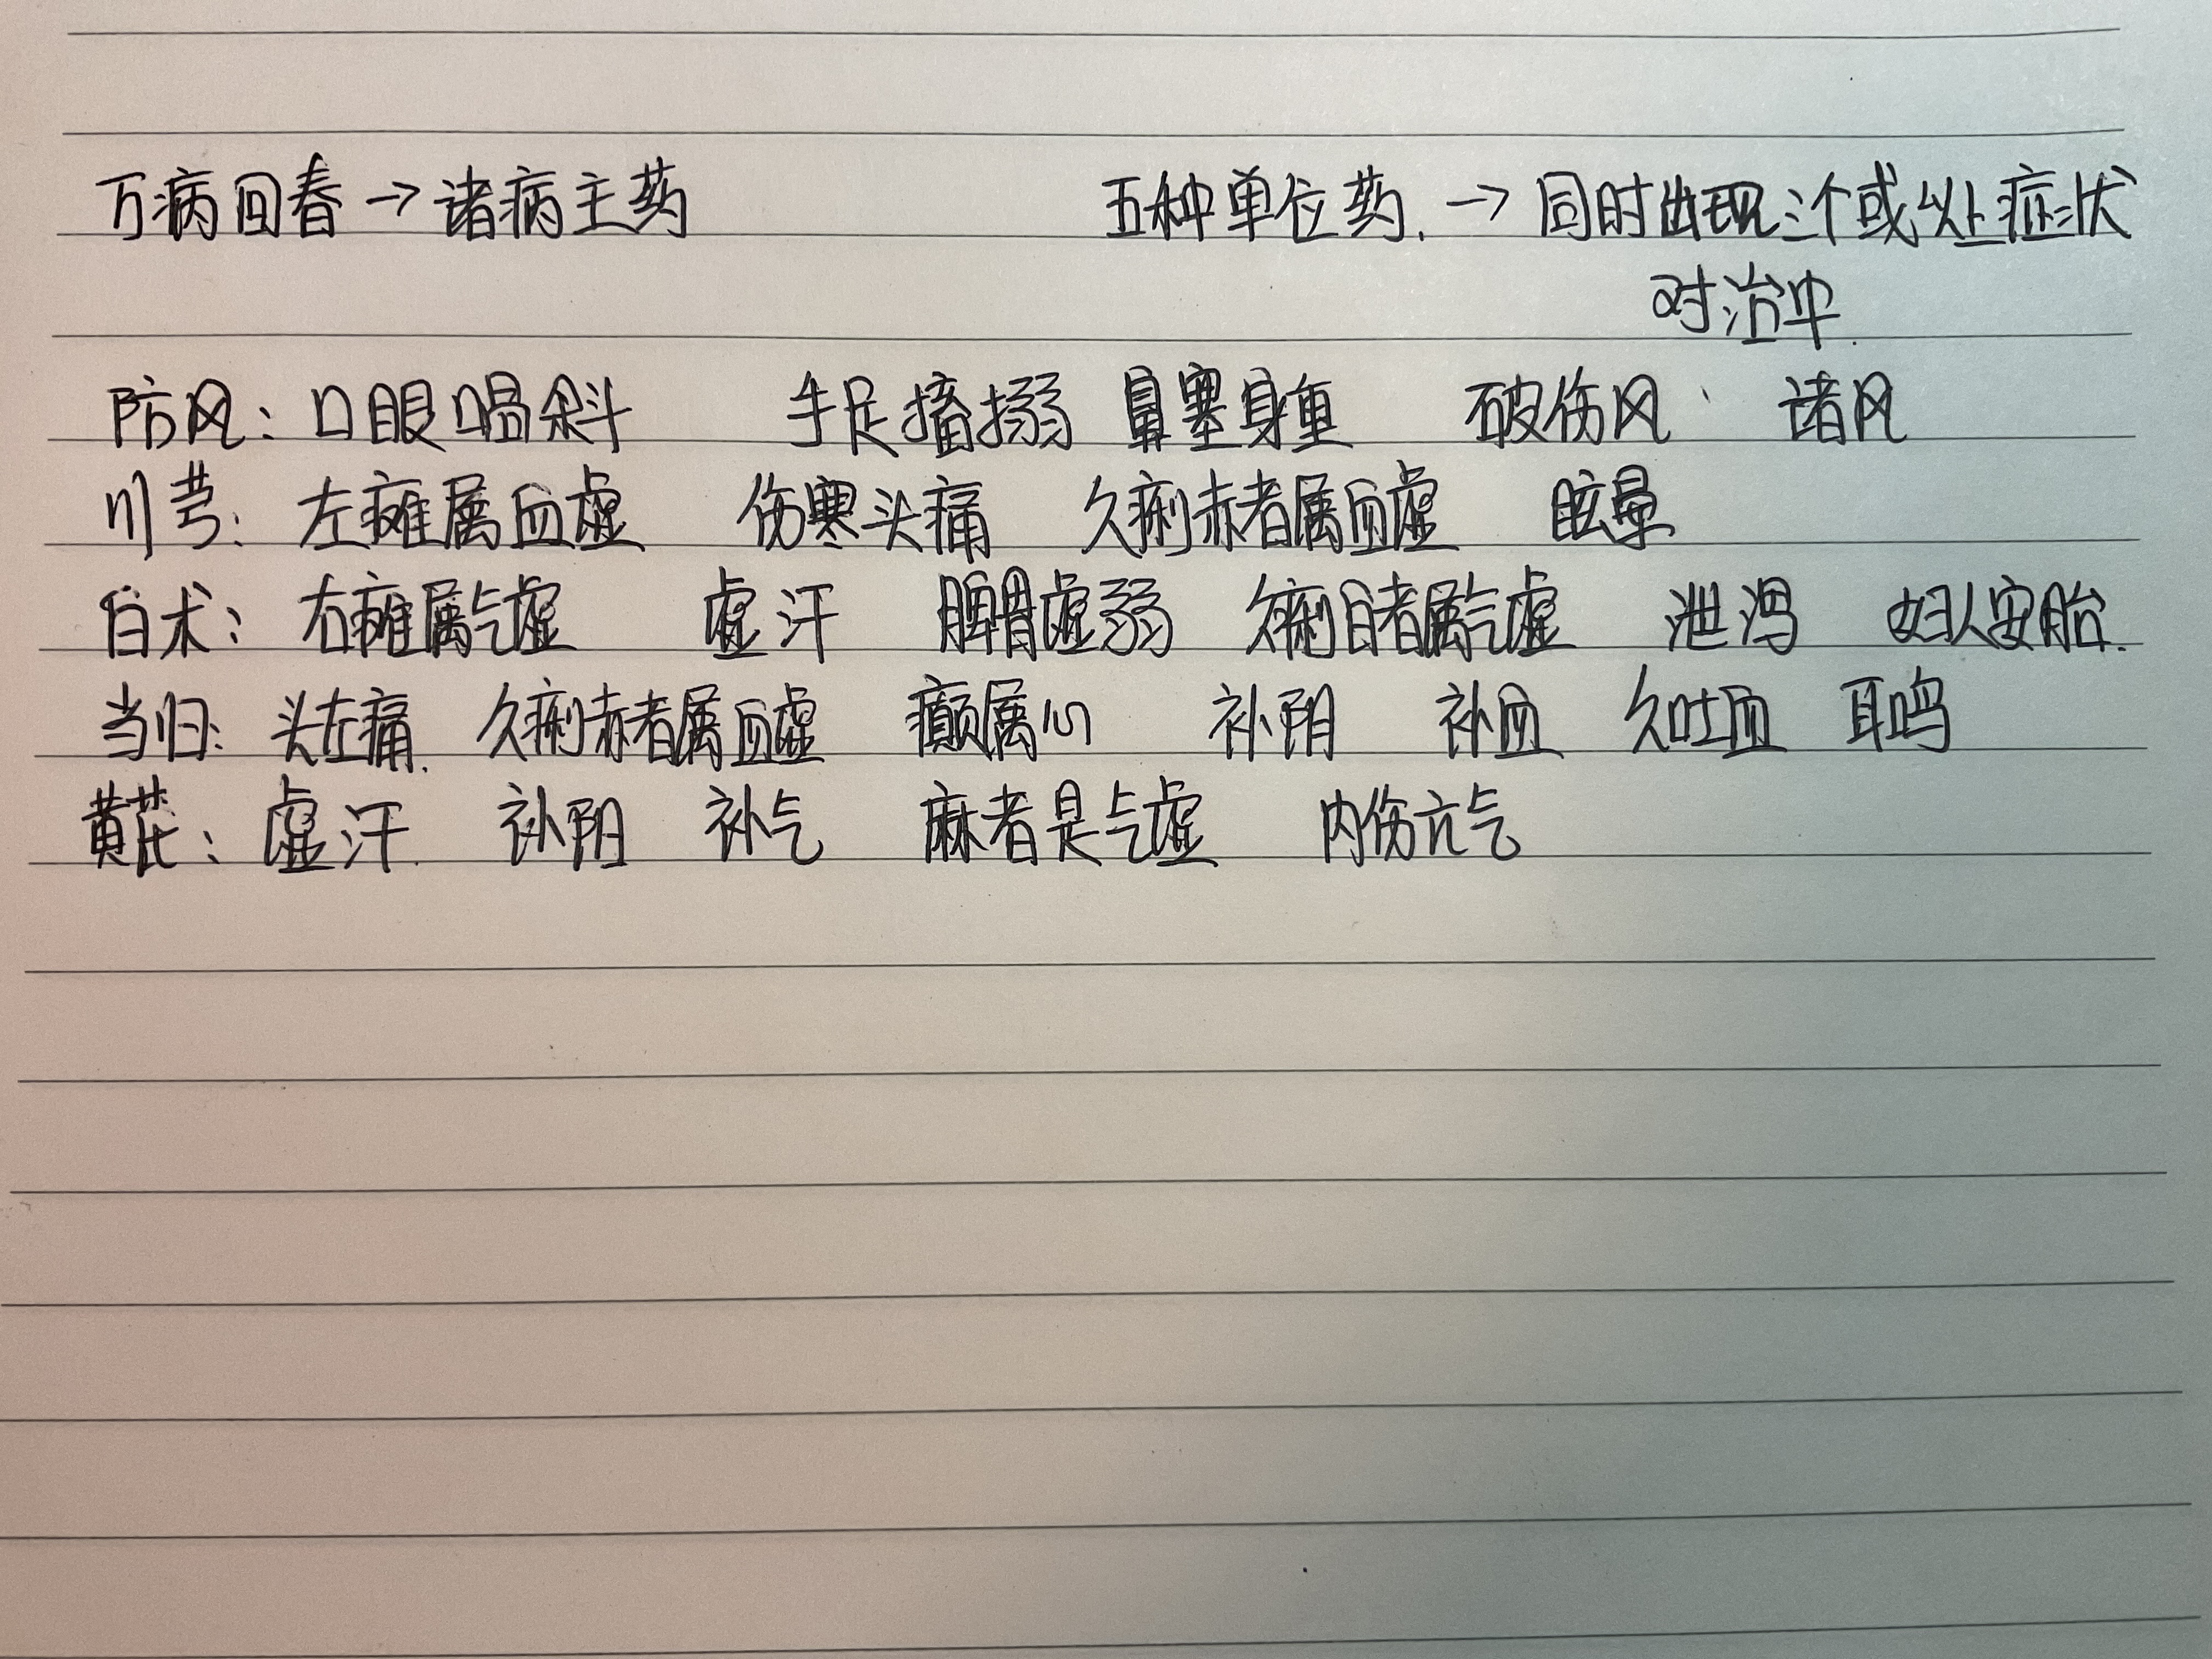 万病回春→诸病主药 五种单位药.→同时出现三个或以上症状
对治中.
防风：口眼㖞斜 手足搐搦 鼻塞身重 破伤风、 诸风
川芎：左瘫属血虚 伤寒头痛 久痢赤者属血虚 眩晕
白术：右瘫属气虚 虚汗 脾胃虚弱 久痢白者属气虚 泄泻 妇人安胎.
当归：头左痛. 久痢赤者属血虚 癫属心 补阴 补血 久吐血 耳鸣
黄芪：虚汗. 补阳 补气 麻者是气虚 内伤元气